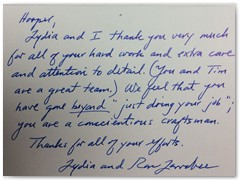 Hooper,
Lydia and I thank you very much
for all of your hard work and extra care
and attention to detail. (You and Tim
are a great team.) We feel that you
have gone beyond "just doing your job";
you are a conscientious craftsman.
Thanks for all of your efforts.
Lydia and Ron Larrabee